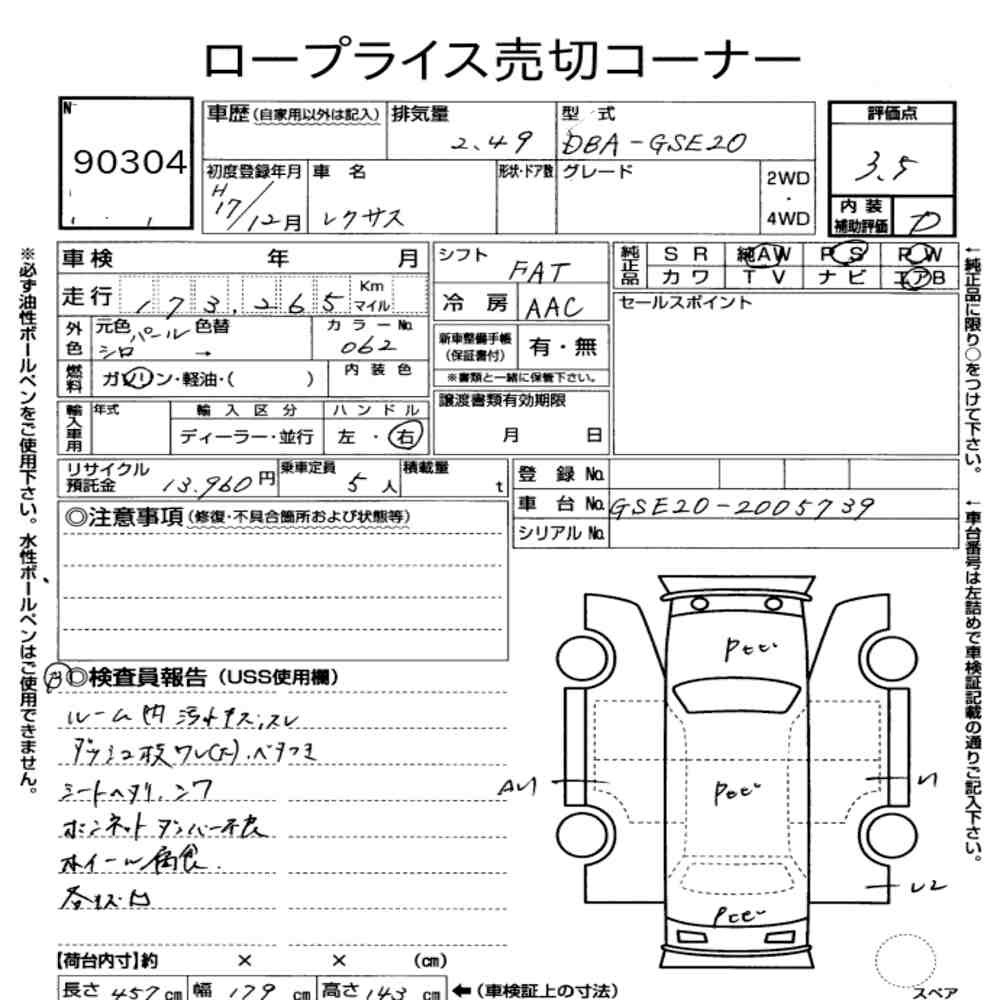 ロープライス売切コーナー
No
90304
車歴(自家用以外は記入) 排気量 2.49 型式 DBA-GSE20
初度登録年月 H17/12月 車名 レクサス 形状・ドア数 グレード 2WD・4WD
評価点 3.5
内装補助評価 D
車検 年 月
走行 173,265 Km マイル
外色 元色 パールシロ → 色替 カラーNo. 062
燃料 ガソリン・軽油・( ) 内装色
輸入車用 年式 輸入区分 ディーラー・並行 ハンドル 左・右
シフト FAT
冷房 AAC
新車整備手帳(保証書付) 有・無
※書類と一緒に保管下さい。
譲渡書類有効期限
月 日
純正品 SR 純AW PS PW
カワ TV ナビ エアB
セールスポイント
リサイクル預託金 13,960円 乗車定員 5人 積載量 t
登録No.
車台No. GSE20-2005739
シリアルNo.
◎注意事項(修復・不具合箇所および状態等)
◎検査員報告(USS使用欄)
ルーム内汚れ キズ、スレ
ダッシュ板ワレ(F)、ベタつき
シートヘタリ、シワ
ボンネットダンパー不良
ホイール腐食.
各キズ・凹
Pとび
Pとび
Pとび
A1
U2
【荷台内寸】約 × × (cm)
長さ 457cm 幅 179cm 高さ 143cm ←(車検証上の寸法)
スペア
※必ず油性ボールペンをご使用下さい。水性ボールペンはご使用できません。
←純正品に限り○をつけて下さい。
←車台番号は左詰めで車検証記載の通りご記入下さい。